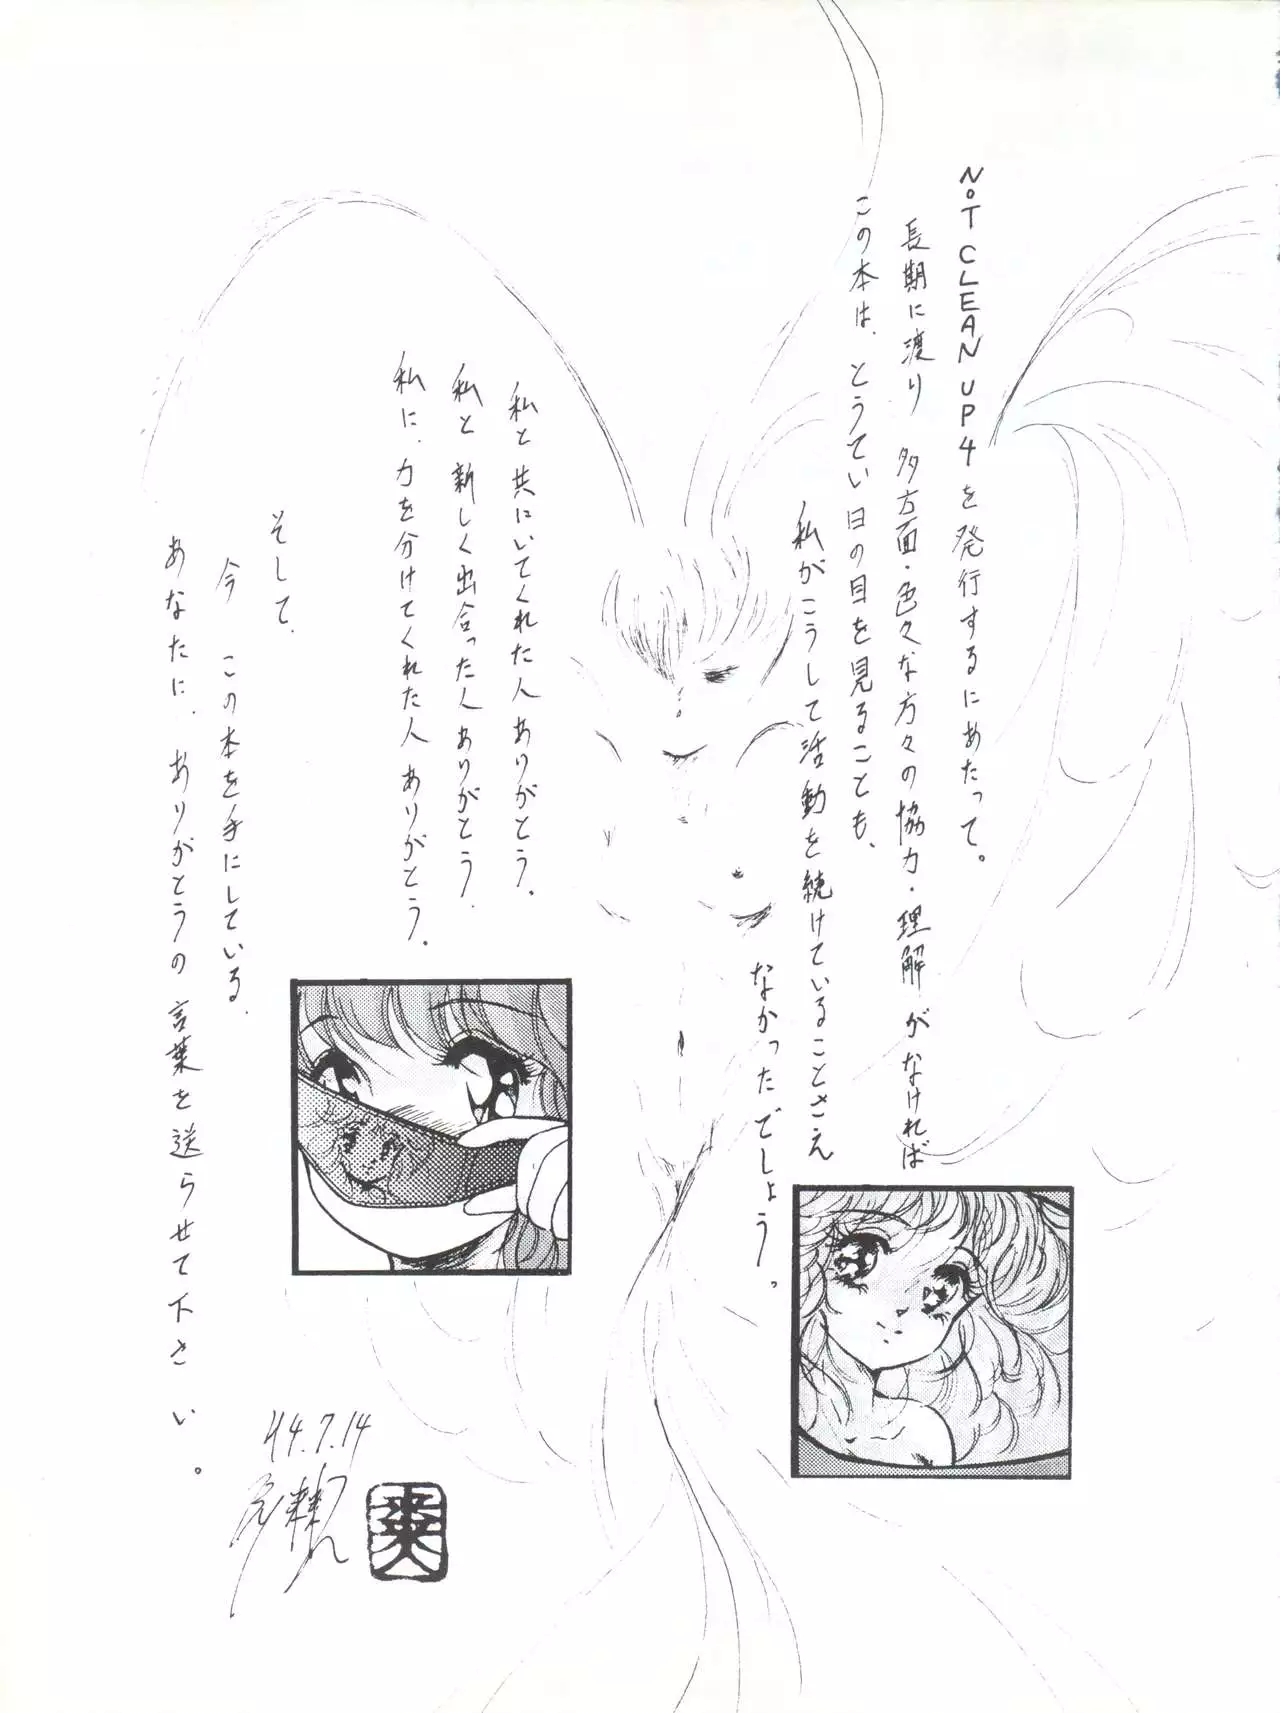 NOT CLEAN UP4を発行するにあたって。
長期に渡り 多方面・色々な方々の協力・理解がなければ
この本は、とうてい日の目を見ることも、
私がこうして活動を続けていることさえ
なかったでしょう。
私と共にいてくれた人ありがとう。
私と新しく出合った人ありがとう。
私に、力を分けてくれた人ありがとう。
そして、
今 この本を手にしている、
あなたに、ありがとうの言葉を送らせて下さい。
'94.7.14